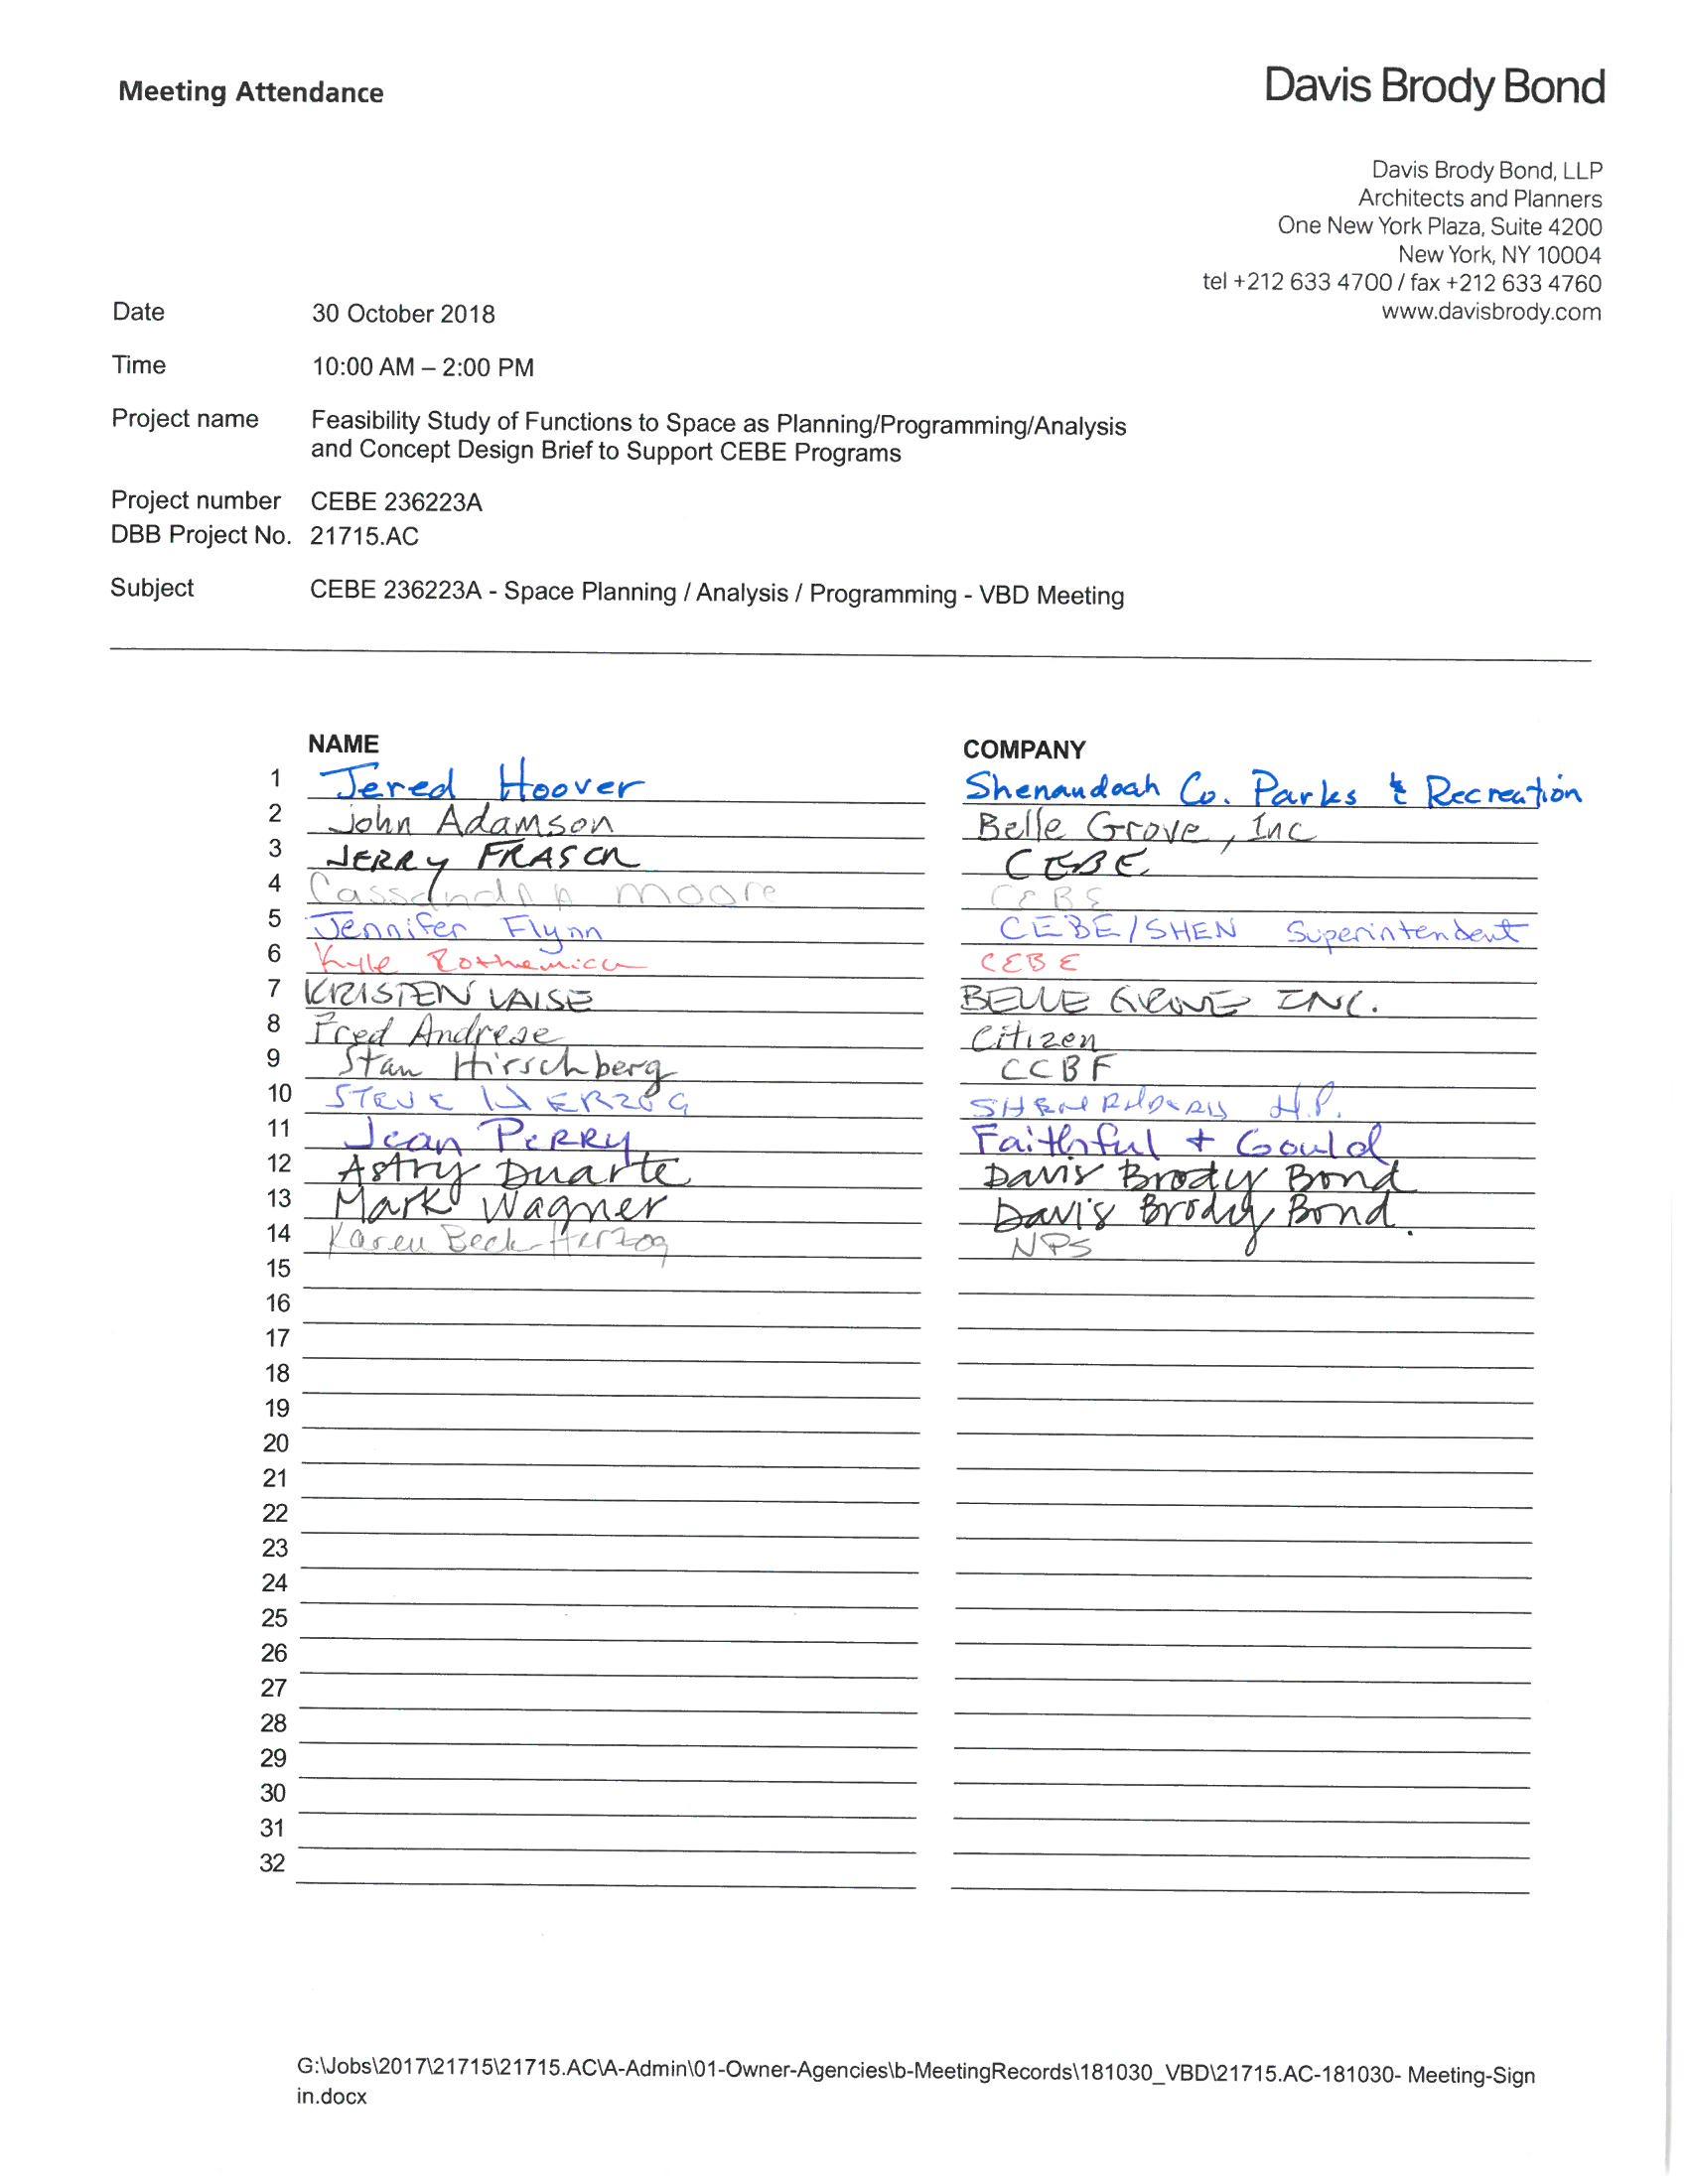 Meeting Attendance
Davis Brody Bond
Davis Brody Bond, LLP
Architects and Planners
One New York Plaza, Suite 4200
New York, NY 10004
tel +212 633 4700 / fax +212 633 4760
www.davisbrody.com
Date 30 October 2018
Time 10:00 AM – 2:00 PM
Project name Feasibility Study of Functions to Space as Planning/Programming/Analysis
and Concept Design Brief to Support CEBE Programs
Project number CEBE 236223A
DBB Project No. 21715.AC
Subject CEBE 236223A - Space Planning / Analysis / Programming - VBD Meeting
NAME COMPANY
1 Jered Hoover Shenandoah Co. Parks & Recreation
2 John Adamson Belle Grove, Inc
3 JERRY CEBE
4 Cassandra Moore CEBE
5 Jennifer Flynn CEBE/SHEN Superintendent
6 Kyle CEBE
7 KRISTEN LAISE BELLE GROVE INC.
8 Fred Andreae Citizen
9 Stan Hirschberg CCBF
10 STEVE H.P.
11 Jean PERRY Faithful + Gould
12 Astry Duarte Davis Brody Bond
13 Mark Wagner Davis Brody Bond.
14 Karen Beck-Herzog NPS
15
16
17
18
19
20
21
22
23
24
25
26
27
28
29
30
31
32
G:\Jobs\2017\21715\21715.AC\A-Admin\01-Owner-Agencies\b-MeetingRecords\181030_VBD\21715.AC-181030- Meeting-Sign
in.docx